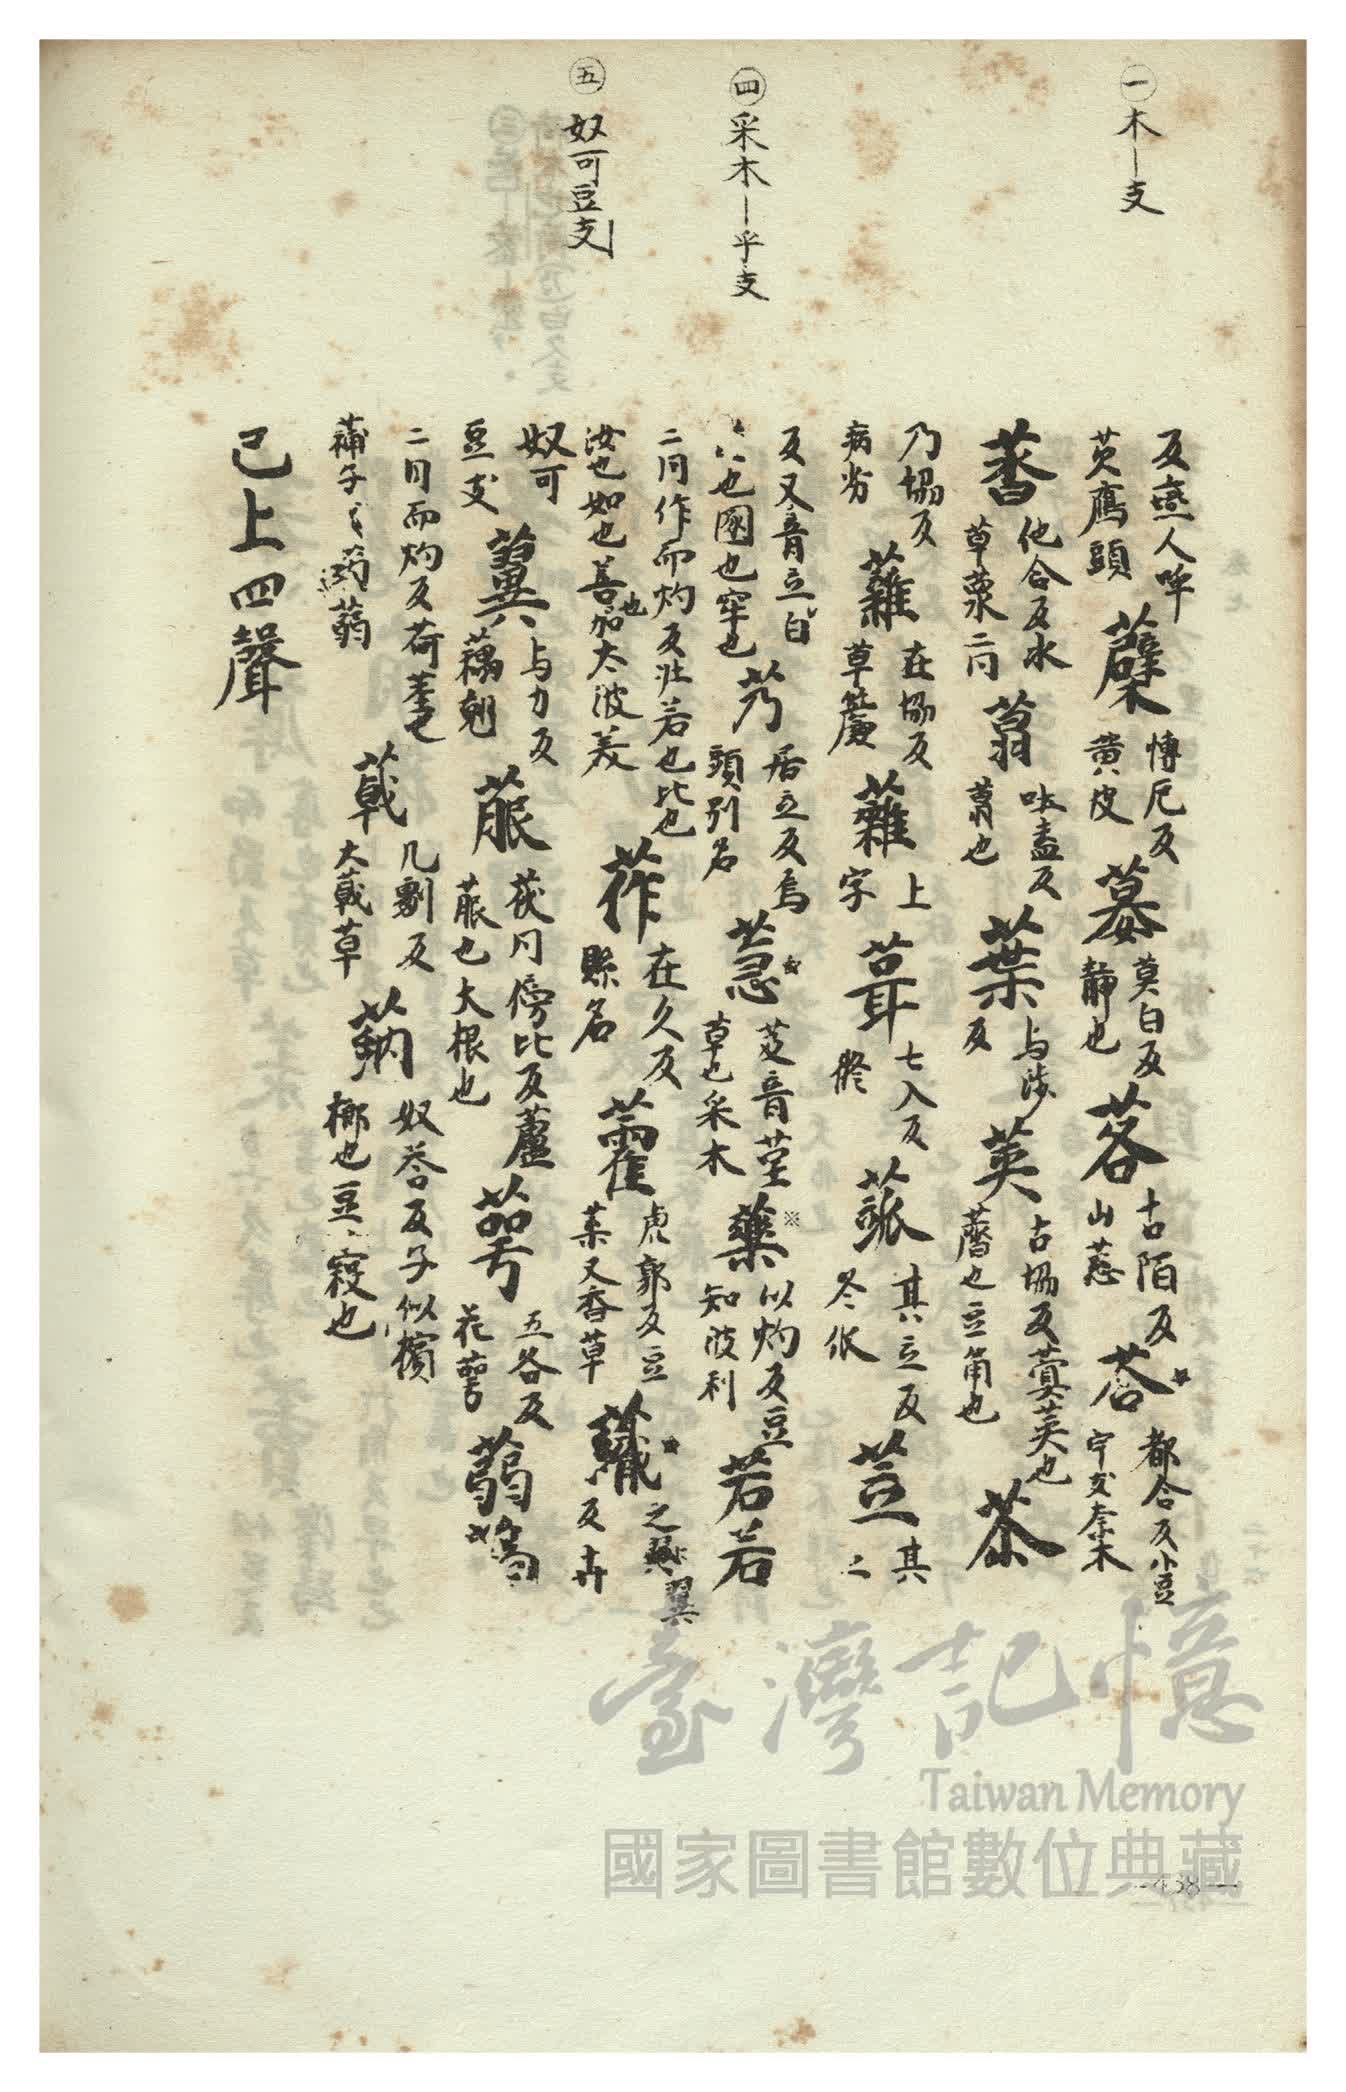 ㊀木—支
㊃采木—乎支
㊄奴可豆支
反燕人哖
芡鴈頭
蘗
慱厄反
黄皮
蓦
莫白反
靜也
茖
古陌反
山葱
荅
都合反小豆
中支奈木
荅
他合反水
草蒙二同
蒻
吐盍反
蒻也
葉
与涉
反
莢
古協反蓂莢也
豆角也
茶
乃協反
病劣
蘿
在協反
草簾
蘿
上
字
葺
七入反
修
蓏
其立反
苙
其
之
反又音立白
也國也牢也
芀
居立反烏
頭別名
葱
芝音莖
草也采木
藥
以灼反豆
知波利
若若
二同作而灼反壯若也比也
汝也如也善也太波美
莋
在久反
縣名
藿
虎郭反豆
菜又香草
蘵
之翼
反卉
奴可
豆支
萛
与力反
藕翹
菔
茯同傍比反蘆
菔也大根也
萼
五各反
花萼
蒻
二同而灼反荷莖也
蒲子
蒻
茙
几劇反
大戟草
蒳
奴荅反子似檳
榔也豆
寇也
已上四聲
臺灣記憶
Taiwan Memory
國家圖書館數位典藏
—438—